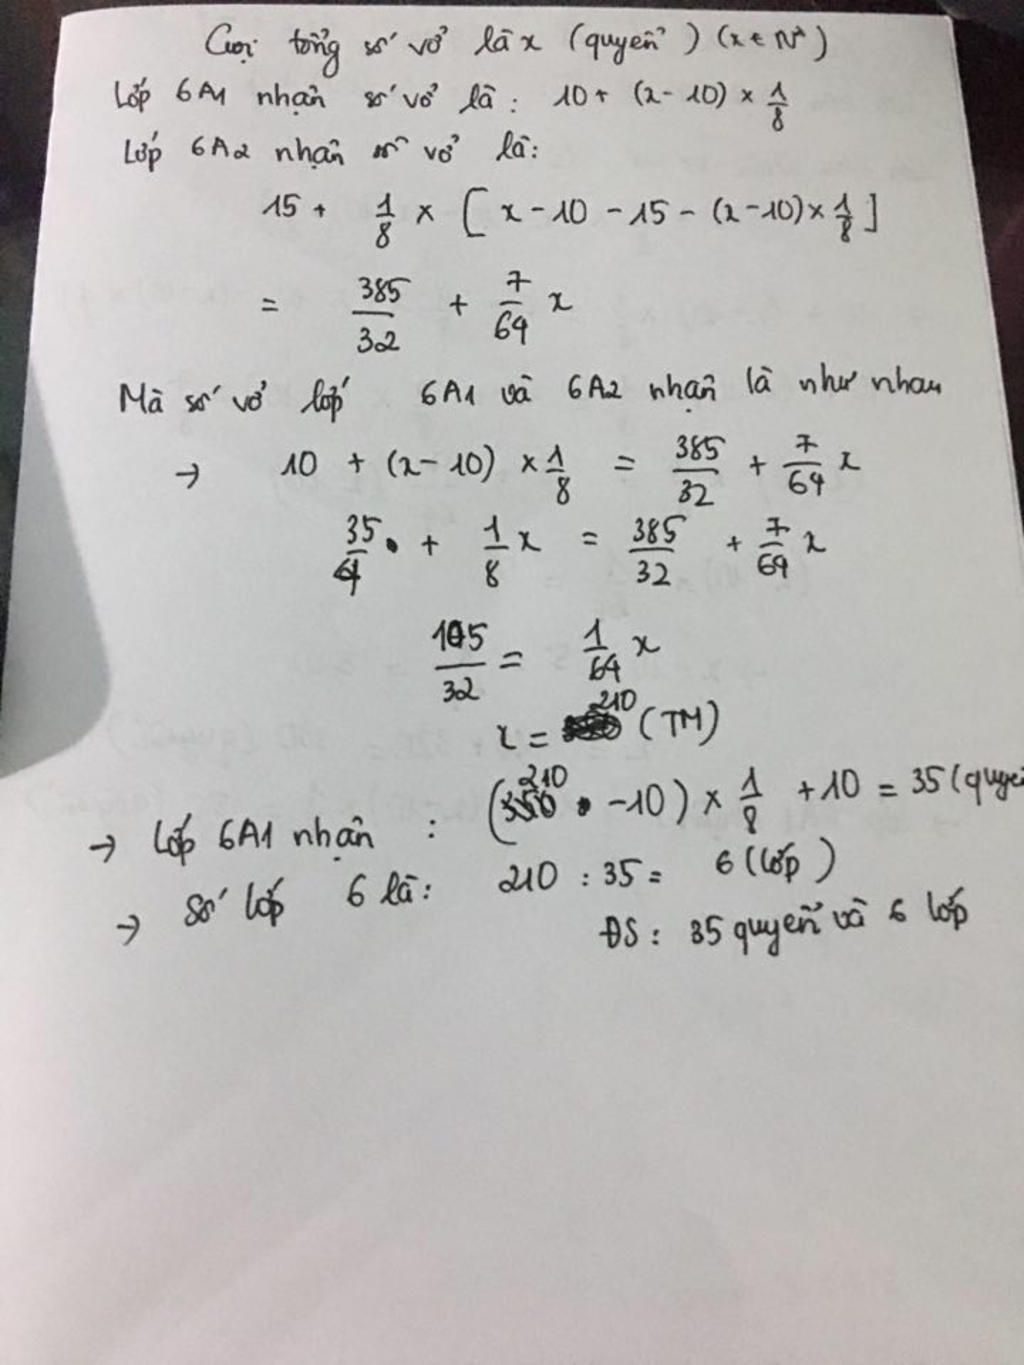 Gọi tổng số vở là x (quyển) (x ∈ N*)
Lớp 6A1 nhận số vở là: 10 + (x - 10) × 1/8
Lớp 6A2 nhận số vở là:
15 + 1/8 × [x - 10 - 15 - (x - 10) × 1/8]
= 385/32 + 7/64 x
Mà số vở lớp 6A1 và 6A2 nhận là như nhau
→ 10 + (x - 10) × 1/8 = 385/32 + 7/64 x
35/4 + 1/8 x = 385/32 + 7/64 x
105/32 = 1/64 x
x = 210 (TM)
→ Lớp 6A1 nhận : (210 - 10) × 1/8 + 10 = 35 (quyể
→ Số lớp 6 là: 210 : 35 = 6 (lớp)
ĐS: 35 quyển và 6 lớp